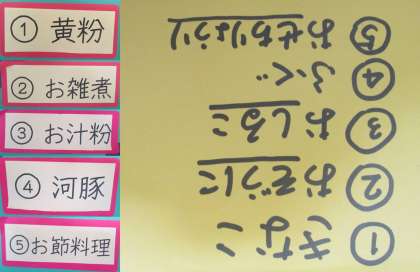 ① 黄粉
② お雑煮
③ お汁粉
④ 河豚
⑤お節料理
① きなこ
② おぞうに
③ おしるこ
④ ふぐ
⑤ おせちりょうり